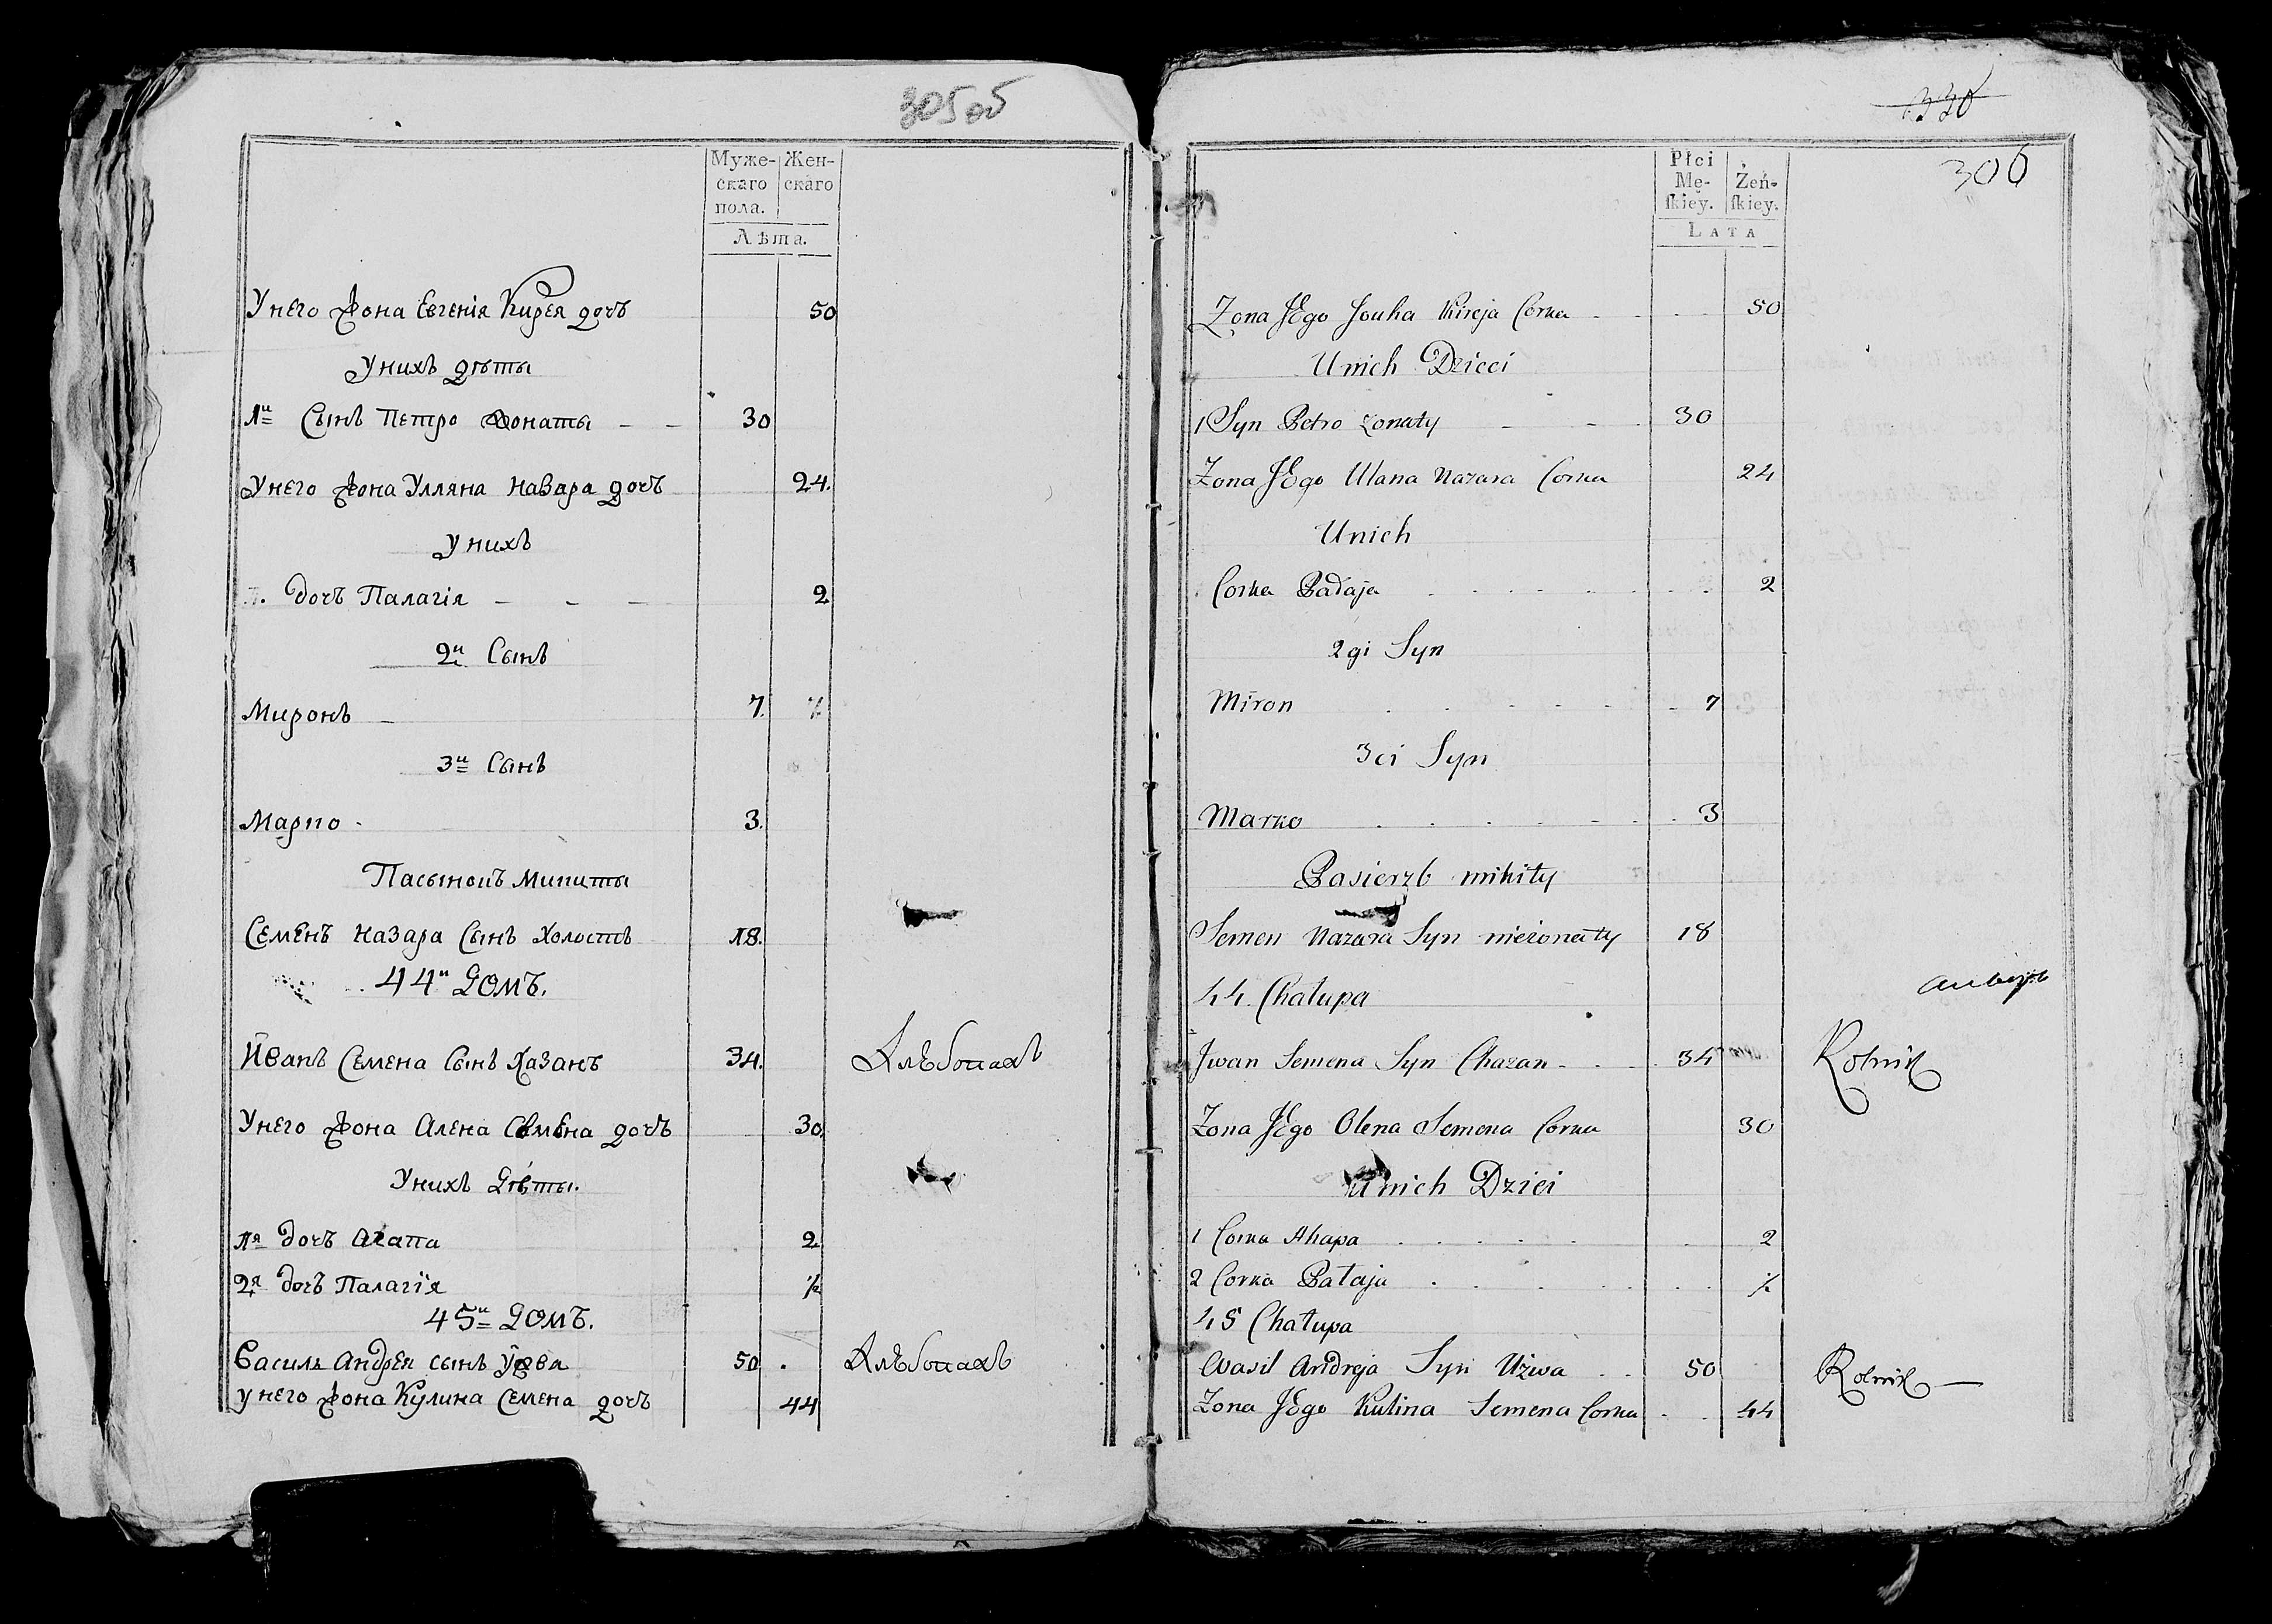 305 об
Муже- Жен-
скаго скаго
пола.
Лѣта.
Унего Жона Евгенія Кирея дочъ 50
Унихъ дѣты
1й Сынъ Петро Жонаты - - 30
Унего Жона Улляна Назара дочъ 24.
Унихъ
дочъ Палагія - - - 2
2й Сынъ
Миронъ - 7.
3й Сынъ
Марко - 3.
Пасынокъ Микиты
Семенъ Назара Сынъ Холостъ 18.
44й Домъ.
Иванъ Семена Сынъ Хазанъ 34. Хлѣбопахъ
Унего Жона Алена Семена дочъ 30.
Унихъ Дѣты.
1я дочъ Агапа 2
2я дочъ Палагія ½
45й Домъ.
Василь Андрея сынъ Ужва 50 . Хлѣбопахъ
Унего Жона Кулина Семена дочъ 44
330
306
Płci
Mę- Żeń-
ſkiey. ſkiey.
LATA
Zona JEgo Jouha Kireja Corka 50
Unich Dzieci
1 Syn Petro zonaty - - 30
Zona JEgo Ulana Nazara Corka 24
Unich
Corka Pałaja 2
2gi Syn
Miron 7
3ci Syn
Marko 3
Pasierzb mikity
Semen Nazara Syn niezonaty 18
44. Chałupa
Jwan Semena Syn Chazan 34 Rolnik
Zona JEgo Olena Semena Corka 30
Unich Dzieci
1 Corka Ahapa 2
2 Corka Pałaja ½
45 Chałupa
Wasil Andreja Syn Użwa 50 Rolnik
Zona JEgo Kulina Semena Corka 44